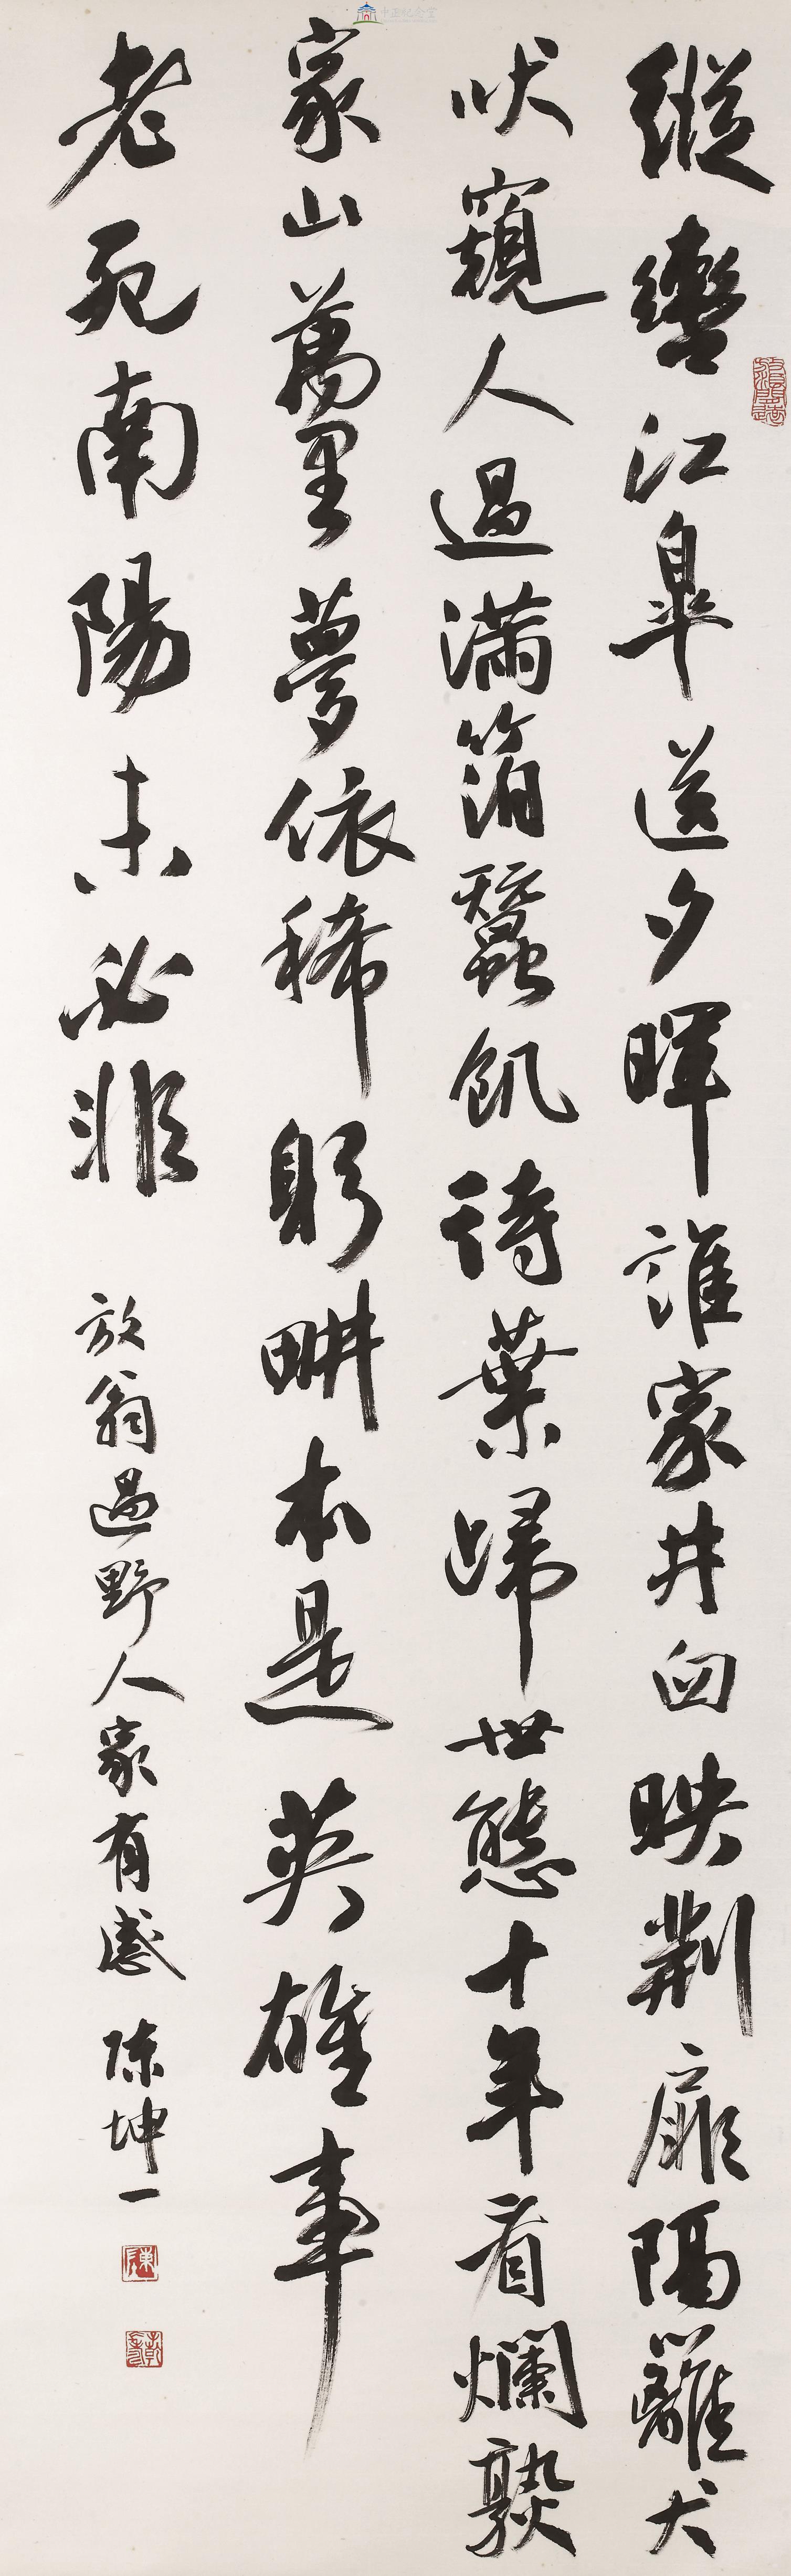 中正紀念堂
縱轡江皐送夕暉誰家井臼映荆扉隔籬犬
吠窺人過滿箔蠶飢待葉歸世態十年看爛熟
家山萬里夢依稀躬畊本是英雄事
老死南陽未必非
放翁過野人家有感 陳坤一